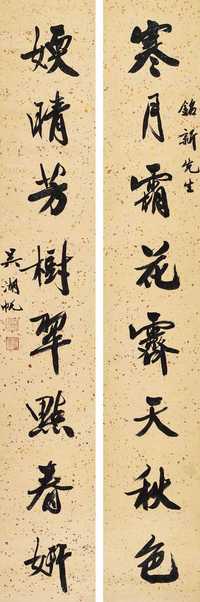 銘新先生
寒月霜花霽天秋色
㛹晴芳樹翠點春妍
吳湖帆